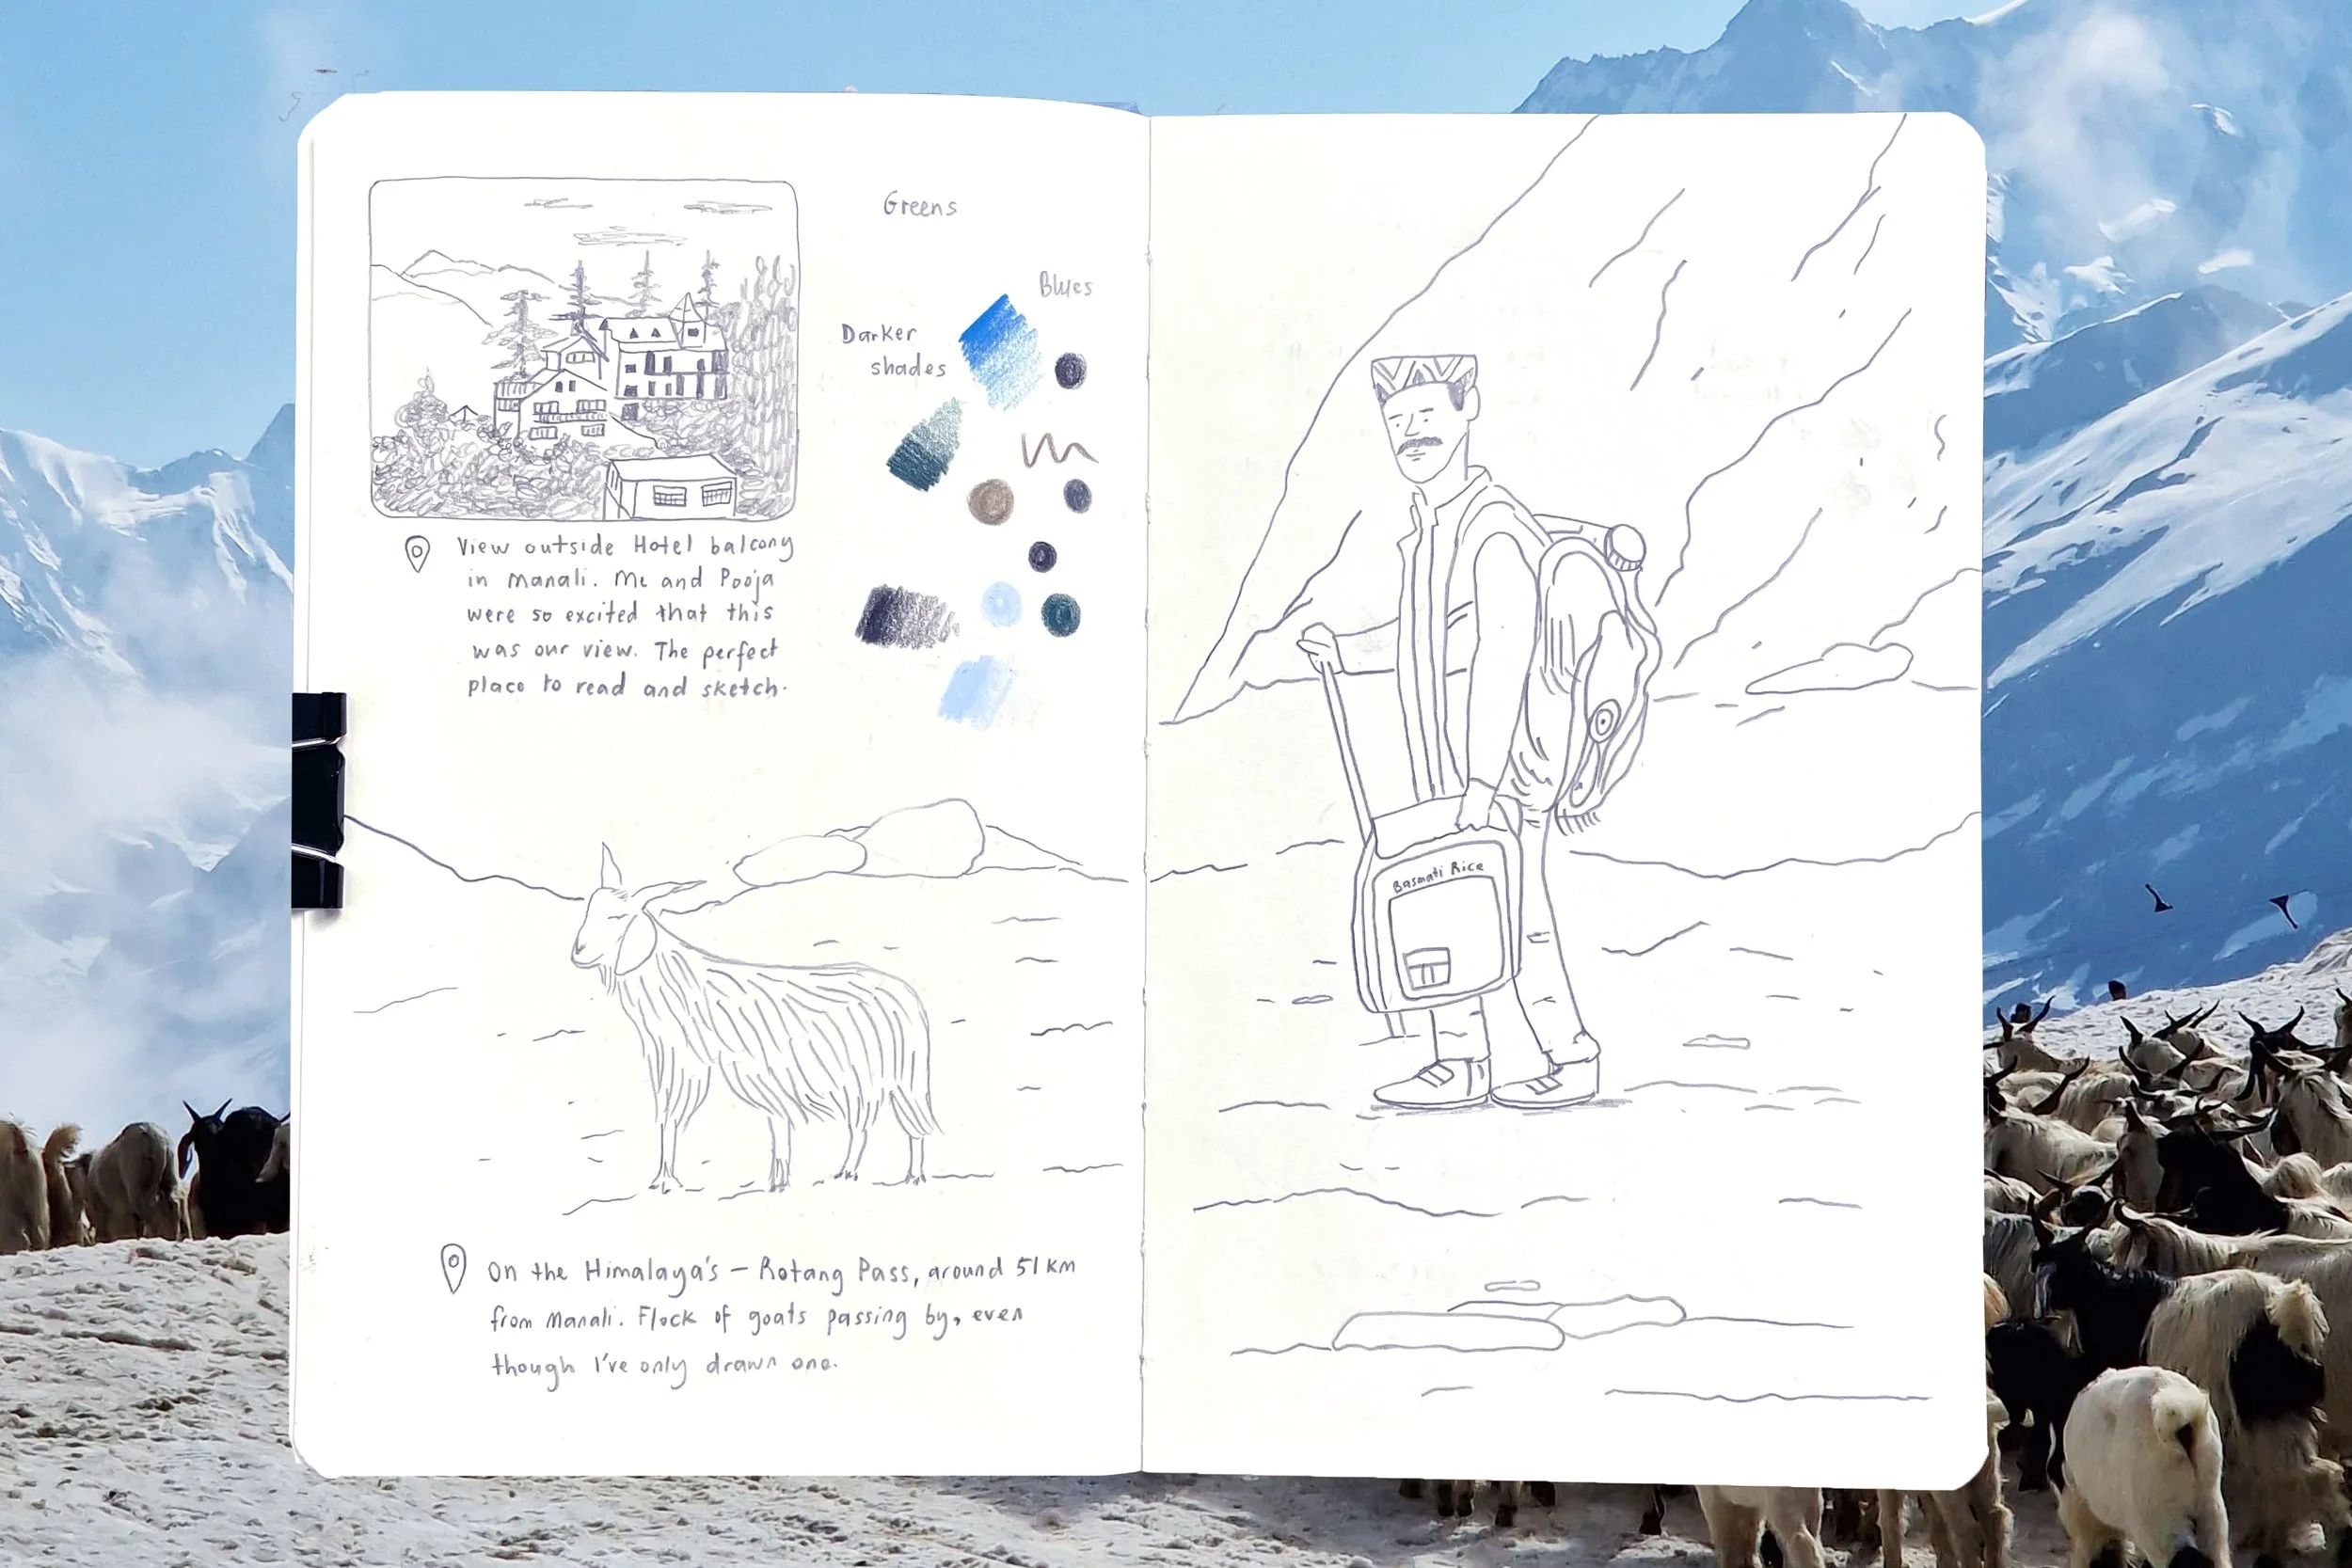 Greens
Blues
Darker
shades
View outside Hotel balcony
in Manali. Me and Pooja
were so excited that this
was our view. The perfect
place to read and sketch.
Basmati Rice
On the Himalaya's – Rotang Pass, around 51 km
from Manali. Flock of goats passing by, even
though I've only drawn one.